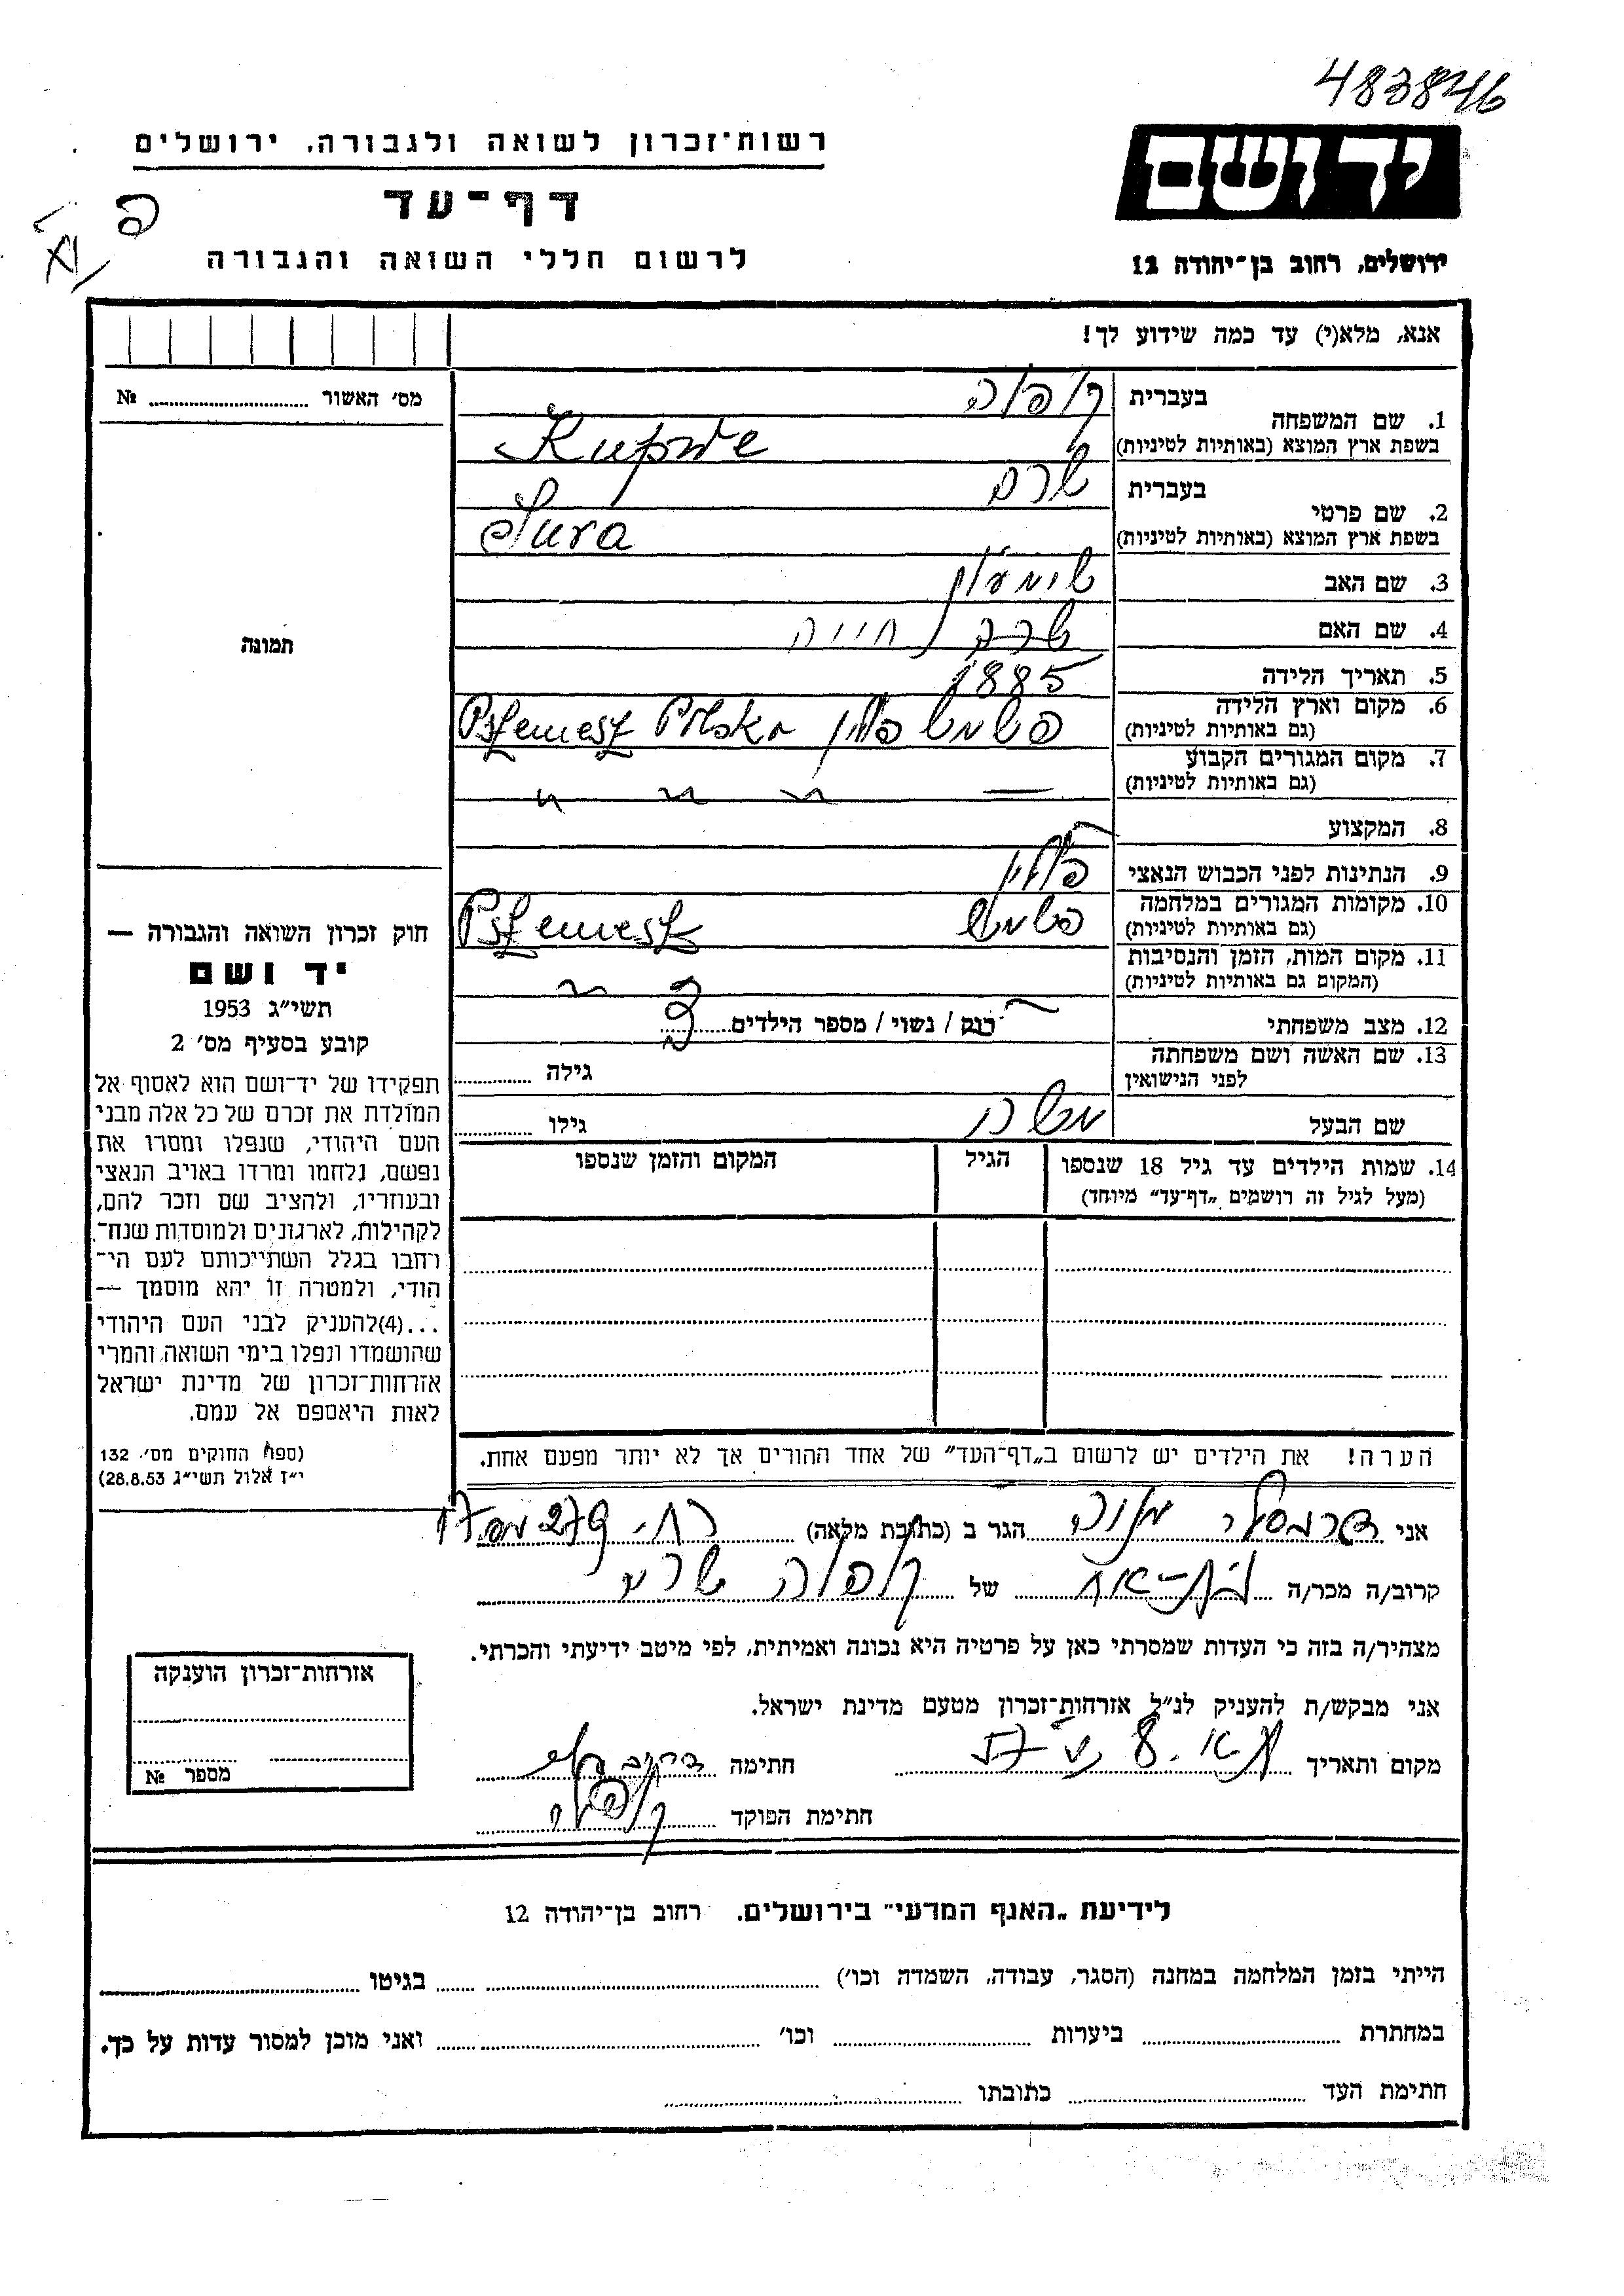 483846
יד ושם
רשות־זכרון לשואה ולגבורה, ירושלים
דף־עד
לרשום חללי השואה והגבורה
ירושלים, רחוב בן־יהודה 12
אנא, מלא(י) עד כמה שידוע לך!
מס׳ האשור № 
1. שם המשפחה
בעברית
בשפת ארץ המוצא (באותיות לטיניות)
2. שם פרטי
בעברית שרה
בשפת ארץ המוצא (באותיות לטיניות) Sura
3. שם האב שימעון
4. שם האם חייה
5. תאריך הלידה 1885
6. מקום וארץ הלידה
(גם באותיות לטיניות) פשמש פולין Polska
7. מקום המגורים הקבוע
(גם באותיות לטיניות)
8. המקצוע
9. הנתינות לפני הכבוש הנאצי פולין
10. מקומות המגורים במלחמה
(גם באותיות לטיניות) פשמש
11. מקום המות, הזמן והנסיבות
(המקום גם באותיות לטיניות)
12. מצב משפחתי רוק / נשוי / מספר הילדים
13. שם האשה ושם משפחתה
לפני הנישואין גילה
שם הבעל משה גילו
14. שמות הילדים עד גיל 18 שנספו הגיל המקום והזמן שנספו
(מעל לגיל זה רושמים „דף־עד״ מיוחד)
תמונה
חוק זכרון השואה והגבורה —
יד ושם
תשי״ג 1953
קובע בסעיף מס׳ 2
תפקידו של יד־ושם הוא לאסוף אל
המולדת את זכרם של כל אלה מבני
העם היהודי, שנפלו ומסרו את
נפשם, נלחמו ומרדו באויב הנאצי
ובעוזריו, ולהציב שם וזכר להם,
לקהילות, לארגונים ולמוסדות שנח־
רחבו בגלל השתייכותם לעם הי־
הודי, ולמטרה זו יהא מוסמך —
...(4)להעניק לבני העם היהודי
שהושמדו ונפלו בימי השואה והמרי
אזרחות־זכרון של מדינת ישראל
לאות היאספם אל עמם.
(ספר החוקים מס׳ 132
י״ז אלול תשי״ג 28.8.53)
הערה! את הילדים יש לרשום ב„דף־העד״ של אחד ההורים אך לא יותר מפעם אחת.
אני הגר ב (כתובת מלאה)
קרוב/ה מכר/ה בת-אח של שרה
מצהיר/ה בזה כי העדות שמסרתי כאן על פרטיה היא נכונה ואמיתית, לפי מיטב ידיעתי והכרתי.
אני מבקש/ת להעניק לנ״ל אזרחות־זכרון מטעם מדינת ישראל.
מקום ותאריך חתימה
חתימת הפוקד
אזרחות־זכרון הוענקה
מספר №
לידיעת „האגף המדעי״ בירושלים. רחוב בן־יהודה 12
הייתי בזמן המלחמה במחנה (הסגר, עבודה, השמדה וכו׳) בגיטו
במחתרת ביערות וכו׳ ואני מוכן למסור עדות על כך.
חתימת העד כתובתו